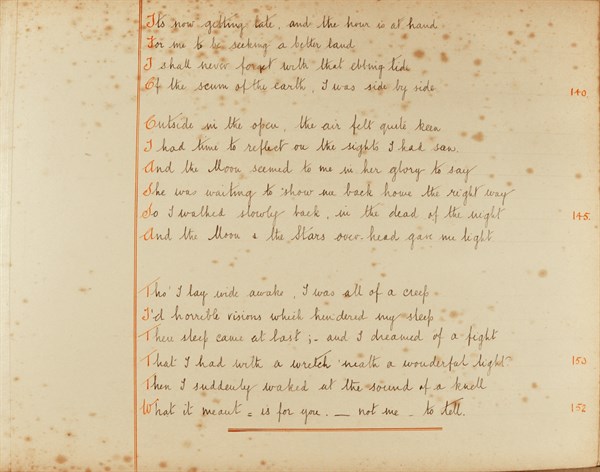 Its now getting late, and the hour is at hand
For me to be seeking a better land
I shall never forget with that ebbing tide
Of the scum of the earth, I was side by side 140.
Outside in the open, the air felt quite keen
I had time to reflect on the sights I had san.
And the Moon seemed to me in her glory to say
She was waiting to show me back home the right way
So I walked slowly back, in the dead of the night 145.
And the Moon & the Stars over-head gave me light.
Tho I lay wide awake, I was all of a creep
I'd horrible visions which hindered my sleep
There sleep came at last ;- and I dreamed of a fight
That I had with a wretch 'neath a wonderful light 150
Then I suddenly waked at the sound of a knell
What it meant = is for you. — not me — to tell. 152